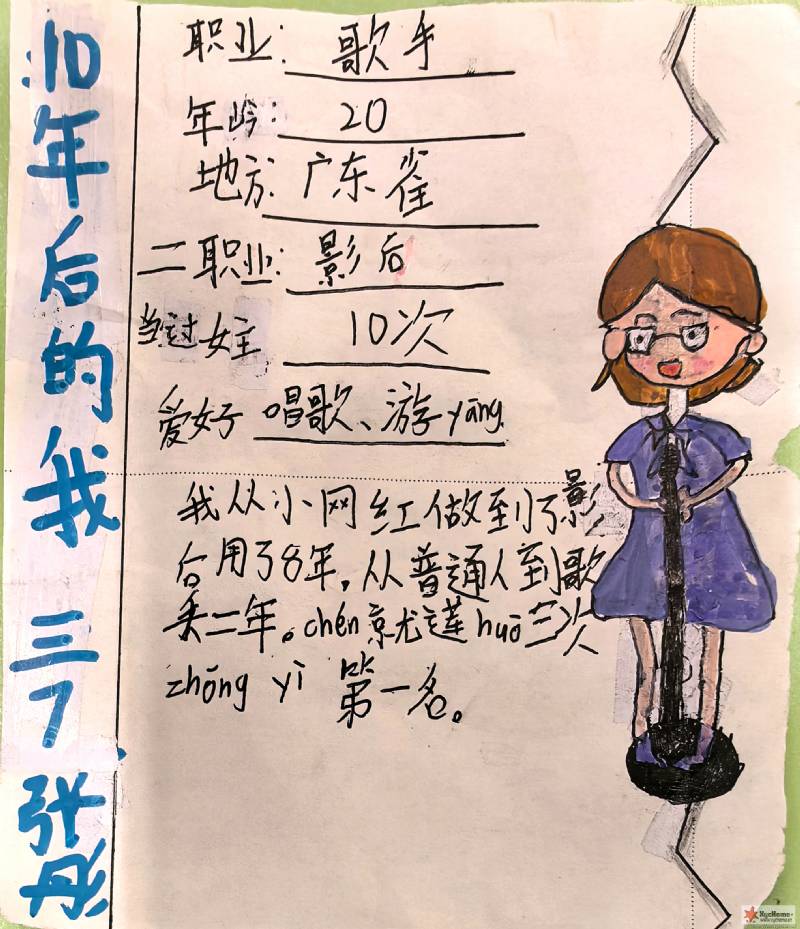 10年后的我 三7 张彤
职业: 歌手
年龄: 20
地方: 广东雀
二职业: 影后
当过女主 10次
爱好 唱歌、游yāng
我从小网红做到了影
后用了8年,从普通人到歌
手二年。chén就莲huō三次
zhōng yì 第一名。